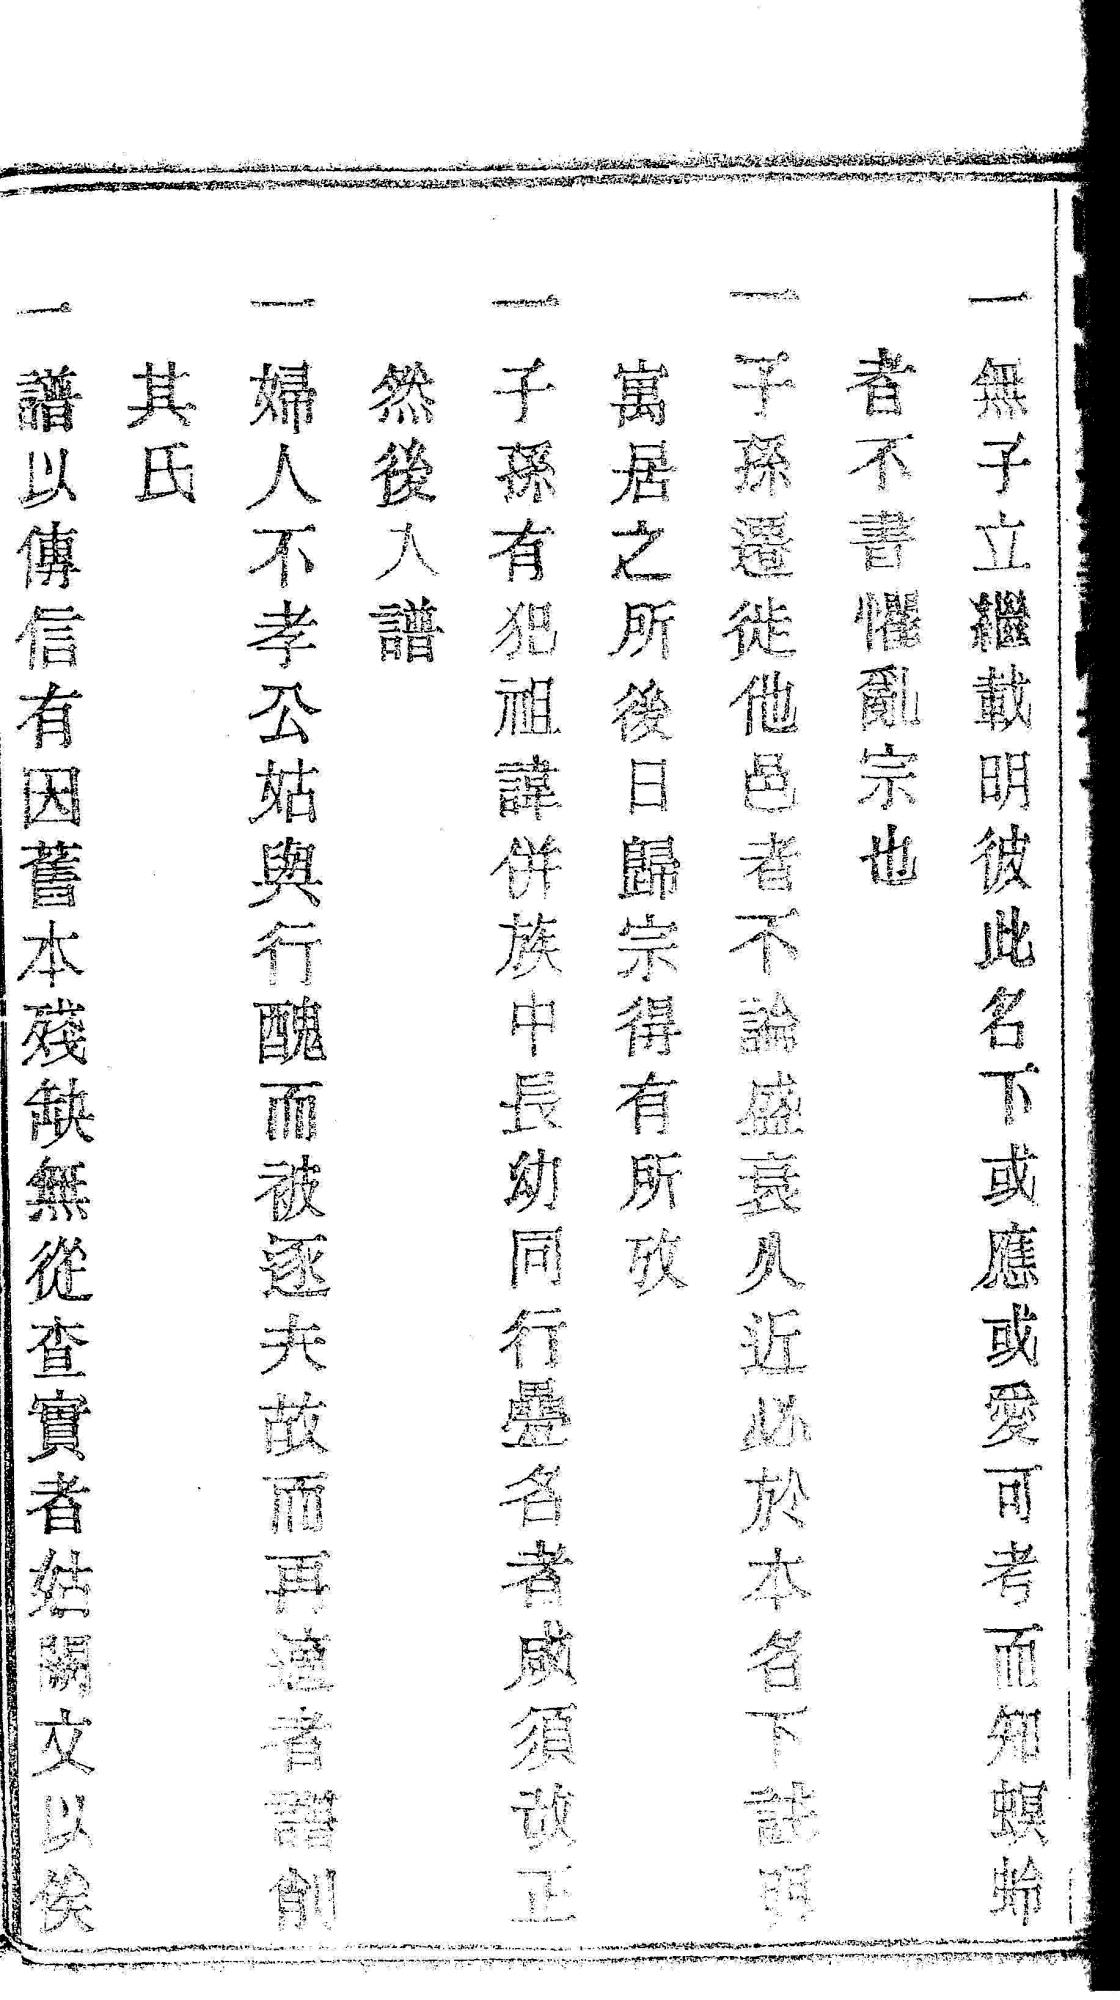 一無子立繼載明彼此名下或應或愛可考而知螟蛉
者不書懼亂宗也
一子孫遷徙他邑者不論盛衰久近必於本名下註明
寓居之所後日歸宗得有所攷
一子孫有犯祖諱併族中長幼同行疊名者咸須改正
然後入譜
一婦人不孝公姑與行醜而被逐夫故而再適者譜削
其氏
一譜以傳信有因舊本殘缺無從查實者姑闕文以俟